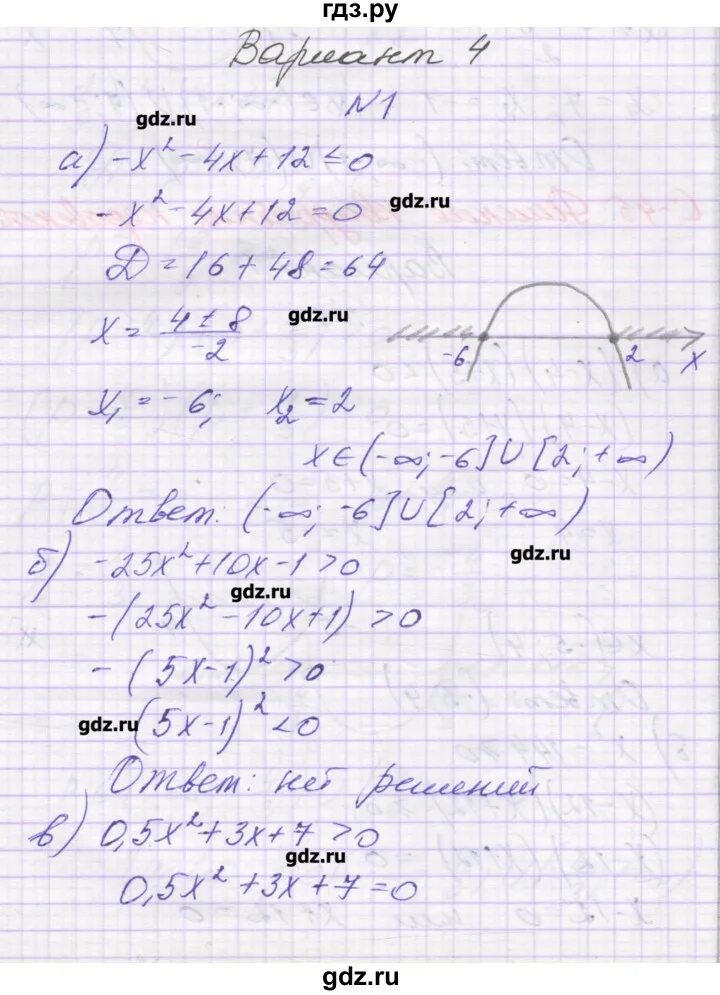 гдз.ру
Вариант 4
N1
gdz.ru
а) -x² - 4x + 12 ≤ 0
-x² - 4x + 12 = 0
gdz.ru
D = 16 + 48 = 64
x = (4 ± 8)/(-2)
gdz.ru
-6 2 x
x₁ = -6; x₂ = 2
x ∈ (-∞; -6] ∪ [2; +∞)
Ответ: (-∞; -6] ∪ [2; +∞)
б) -25x² + 10x - 1 > 0
gdz.ru
gdz.ru
-(25x² - 10x + 1) > 0
-(5x - 1)² > 0
gdz.ru
(5x - 1)² < 0
Ответ: нет решений
в) 0,5x² + 3x + 7 > 0
gdz.ru
0,5x² + 3x + 7 = 0
gdz.ru